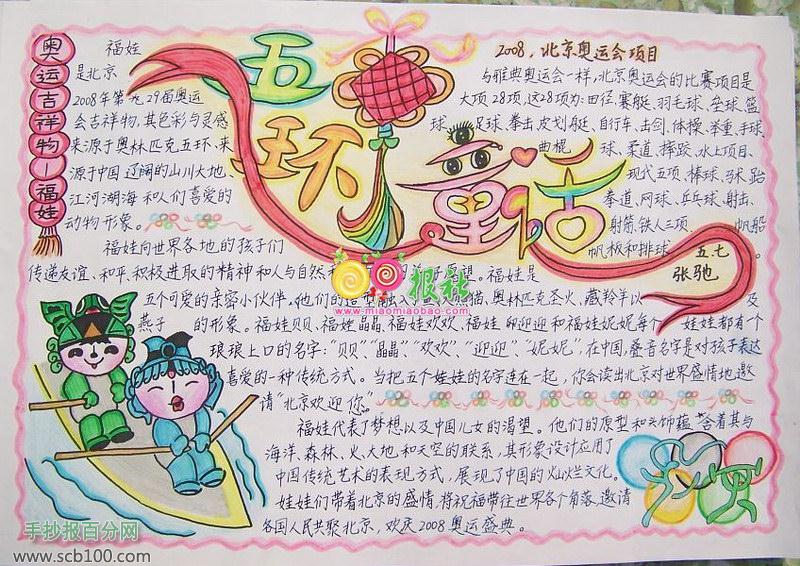 奥运吉祥物—福娃
五环童话
福娃
是北京
2008年第29届奥运
会吉祥物,其色彩与灵感
来源于奥林匹克五环、来
源于中国辽阔的山川大地、
江河湖海和人们喜爱的
动物形象。
福娃向世界各地的孩子们
传递友谊、和平、积极进取的精神和人与自然和
愿望。福娃是
五个可爱的亲密小伙伴。他们的造型融入了
熊猫、奥林匹克圣火、藏羚羊以
及
燕子的形象。福娃贝贝、福娃晶晶、福娃欢欢、福娃迎迎和福娃妮妮每个娃娃都有个
琅琅上口的名字:“贝贝”“晶晶”“欢欢”、“迎迎”、“妮妮”,在中国,叠音名字是对孩子表达
喜爱的一种传统方式。当把五个娃娃的名字连在一起,你会读出北京对世界盛情地邀
请“北京欢迎你”
福娃代表了梦想以及中国儿女的渴望。他们的原型和头饰蕴含着其与
海洋、森林、火、大地、和天空的联系,其形象设计应用了
中国传统艺术的表现方式,展现了中国的灿烂文化。
娃娃们带着北京的盛情,将祝福带往世界各个角落,邀请
各国人民共聚北京,欢庆2008奥运盛典。
2008,北京奥运会项目
与雅典奥运会一样,北京奥运会的比赛项目是
大项28项,这28项为:田径、赛艇、羽毛球、垒球、篮
球、足球、拳击、皮划艇、自行车、击剑、体操、举重、手球
曲棍球、柔道、摔跤、水上项目、
现代五项、棒球、马术、跆
拳道、网球、乒乓球、射击、
射箭、铁人三项、帆船
帆板和排球。
五七
张驰
报社
www.miaomiaobao.com
手抄报百分网
www.scb100.com